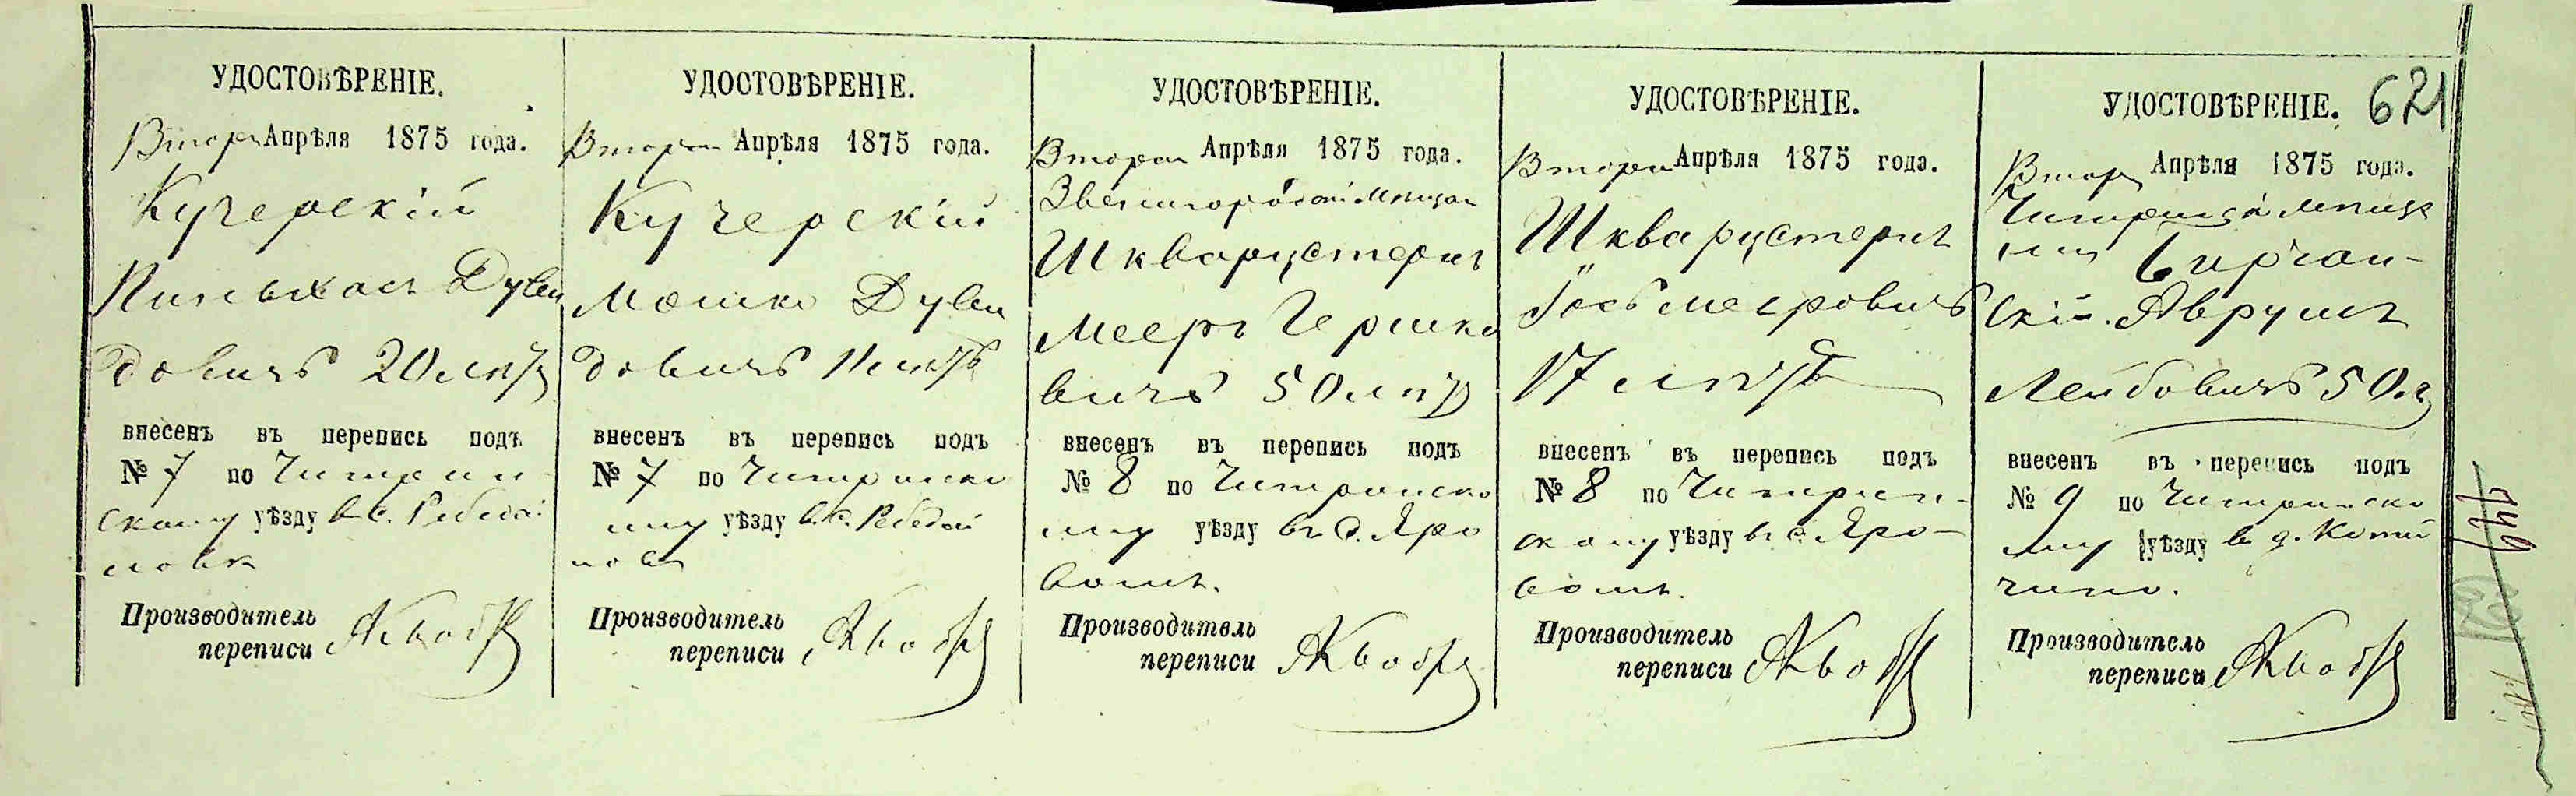 621
УДОСТОВѢРЕНІЕ.
Втораг Апрѣля 1875 года.
Кучерскій
Пиньхас Дувид
довичъ 20 лѣтъ
внесенъ въ перепись подъ
№ 7 по Чигрин
скому уѣзду в с. Ребедай
ловка
Производитель
переписи
УДОСТОВѢРЕНІЕ.
Втораг Апрѣля 1875 года.
Кучерскій
Мошко Дуви
довичъ 11 лѣтъ
внесенъ въ перепись подъ
№ 7 по Чигринско
му уѣзду в с. Ребедай
ловк
Производитель
переписи
УДОСТОВѢРЕНІЕ.
Втораг Апрѣля 1875 года.
Шкварцстернъ
Мееръ Гершко
вичъ 50 лѣтъ
внесенъ въ перепись подъ
№ 8 по Чигринско
му уѣзду въ с. Яро
вомъ.
Производитель
переписи
УДОСТОВѢРЕНІЕ.
Втораг Апрѣля 1875 года.
Шкварцстернъ
Іось Мееровичъ
17 лѣтъ
внесенъ въ перепись подъ
№ 8 по Чигрин-
скому уѣзду въ с. Яро-
вомъ.
Производитель
переписи
УДОСТОВѢРЕНІЕ.
Втор Апрѣля 1875 года.
скій. Аврумъ
Лейбовичъ 50 л
внесенъ въ перепись подъ
№ 9 по Чигринско
му уѣзду в
Производитель
переписи